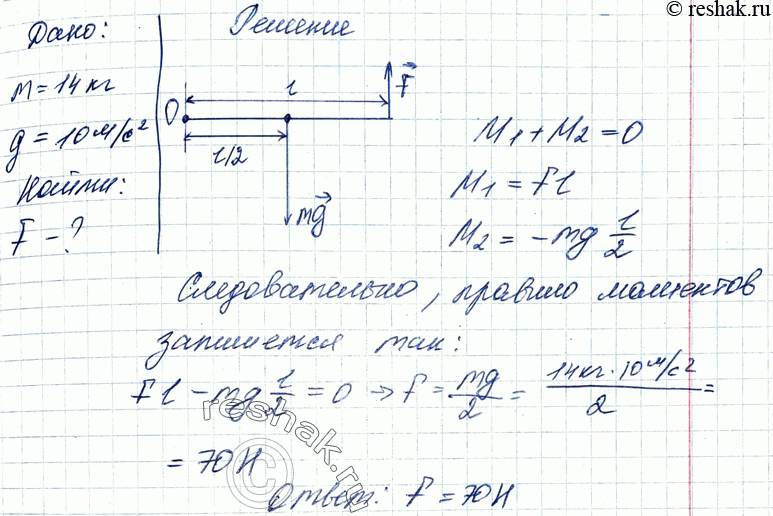 © reshak.ru
Дано:
m = 14 кг
g = 10 м/с²
Найти:
F - ?
Решение
l
F⃗
O
l/2
mg⃗
M₁ + M₂ = 0
M₁ = Fl
M₂ = -mg l/2
Следовательно, правило моментов
запишется так:
Fl - mg l/2 = 0 → F = mg/2 = 14кг · 10 м/с²/2 =
= 70 Н
reshak.ru
©
Ответ: F = 70 Н